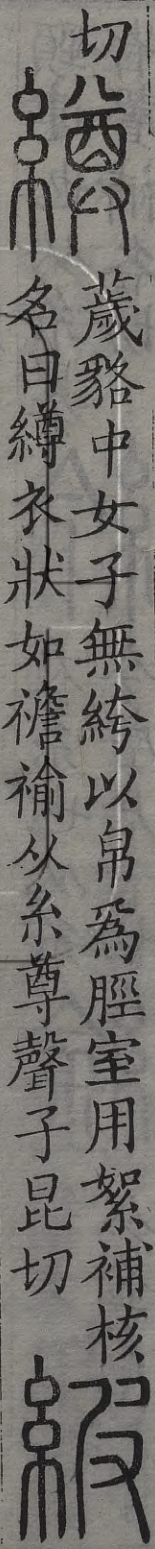 切
繜
薉貉中女子無絝以帛爲脛室用絮補核
名曰繜衣狀如襜褕从糸尊聲子昆切
紴